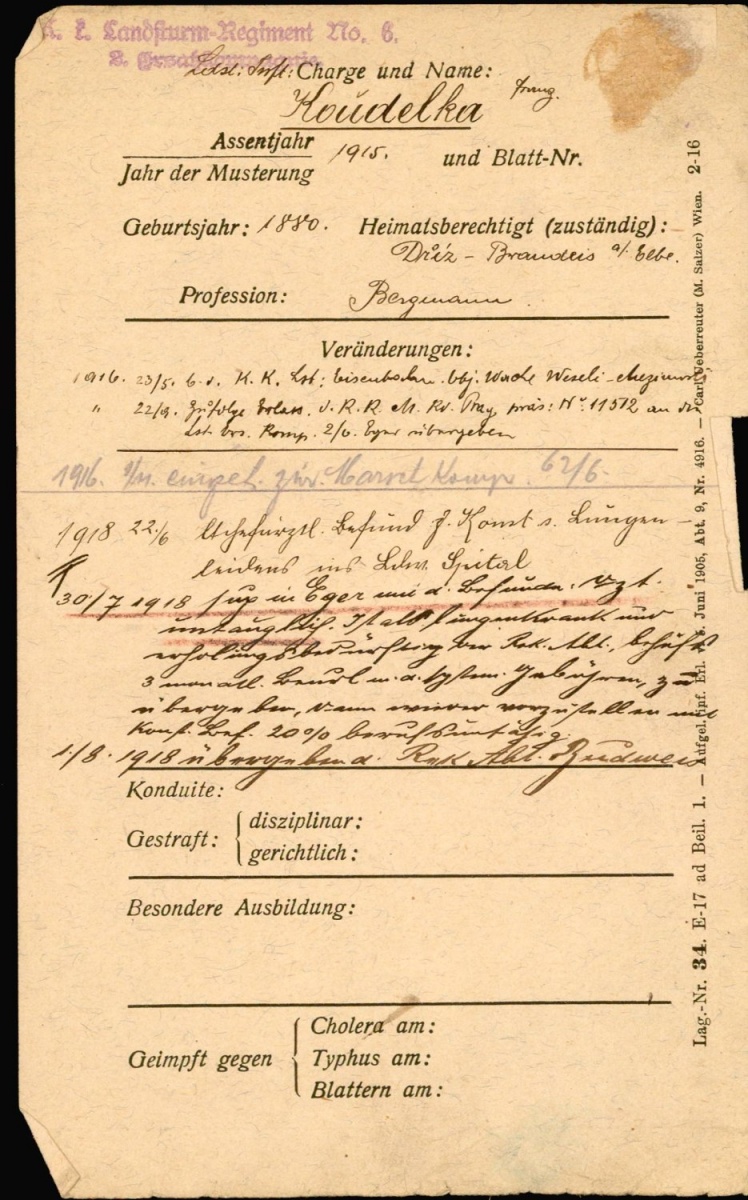 K. k. Landsturm-Regiment No. 6.
2. Ersatzkompanie
Ldst. Inft: Charge und Name:
Koudelka Franz.
Assentjahr
Jahr der Musterung
1915. und Blatt-Nr.
Geburtsjahr: 1880. Heimatsberechtigt (zuständig):
Dřiz – Brandeis a/ Elbe.
Profession: Bergmann.
Veränderungen:
1916. 23/5. K. K. Lst: Eisenbahn Wache Weseli-Mezimosti,
" zufolge Erlass. d. K. K. M. Kd. Prag präs: Nº 11512 an die
Lst. Ers. Komp. 2/6. Eger übergeben
1916. eingel. zur Marschkomp. 62/6.
1918 22./6 Befund z. Konst. s. Lungen-
leidens ins Spital
30/7 1918 sup in Eger mit d. Befunde:
untauglich. Ist als lungenkrank und
erholungsbedürftig der Rek. Abt., behufs
3 monatl. Beurl. m. d. system. Gebühren, zu
übergeben, dann wieder vorzustellen mit
Konst. Bef. 20% berufsuntätig.
1./8. 1918 übergeben d. Rek. Abt. Budweis
Konduite:
Gestraft:
disziplinar:
gerichtlich:
Besondere Ausbildung:
Geimpft gegen
Cholera am:
Typhus am:
Blattern am:
Lag.-Nr. 34. E-17 ad Beil. 1. — Aufgel. pf. Erl. Juni 1905, Abt. 9, Nr. 4916. — Carl Ueberreuter (M. Salzer) Wien. 2-16